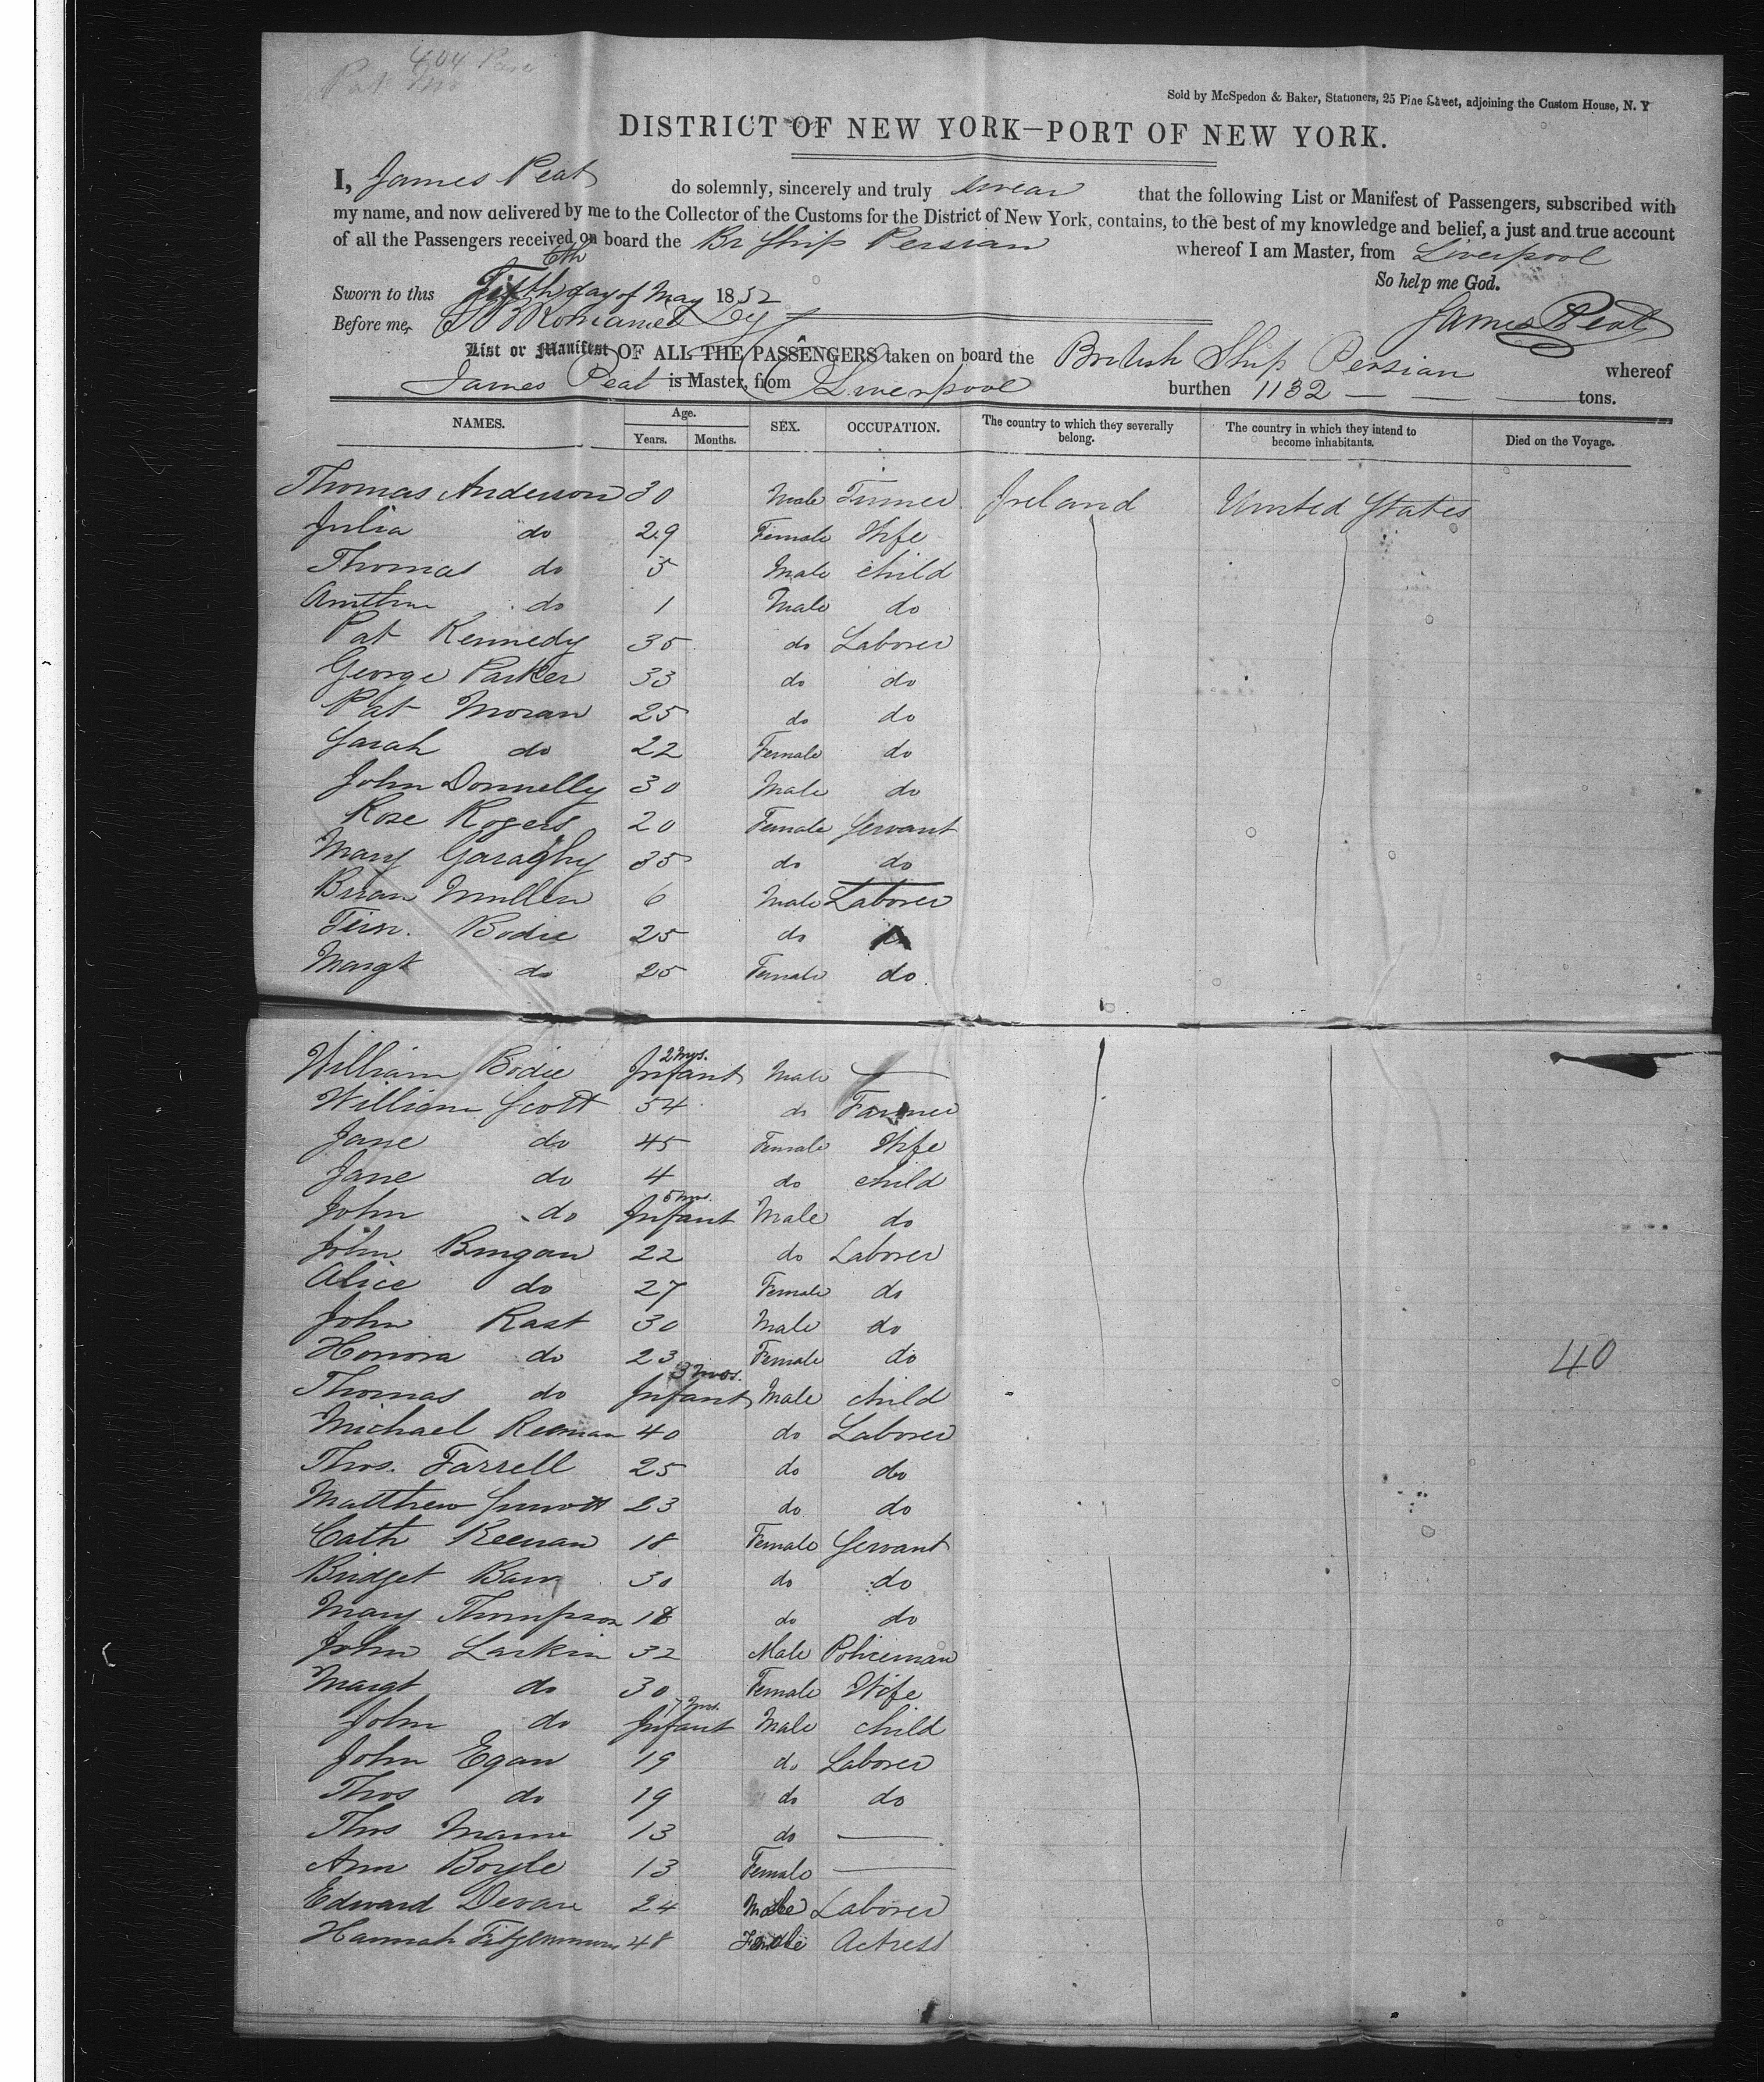 404 Pass
Sold by McSpedon & Baker, Stationers, 25 Pine Street, adjoining the Custom House, N. Y
DISTRICT OF NEW YORK—PORT OF NEW YORK.
I, James Peat do solemnly, sincerely and truly swear that the following List or Manifest of Passengers, subscribed with
my name, and now delivered by me to the Collector of the Customs for the District of New York, contains, to the best of my knowledge and belief, a just and true account
of all the Passengers received on board the Br Ship Persian whereof I am Master, from Liverpool
So help me God.
6th
Sworn to this Fifth day of May 1852
Before me, James Peat
List or Manifest OF ALL THE PASSENGERS taken on board the British Ship Persian whereof
James Peat is Master, from Liverpool burthen 1132 — — — tons.
NAMES. Age. SEX. OCCUPATION. The country to which they severally belong. The country in which they intend to become inhabitants. Died on the Voyage.
Years. Months.
Thomas Anderson 30 Male Ireland United States
Julia do 29 Female Wife
Thomas do 5 Male child
do 1 Male do
Pat Kennedy 35 do Laborer
George Parker 33 do do
Pat Moran 25 do do
Sarah do 22 Female do
John Donnelly 30 Male do
Rose Rogers 20 Female Servant
Mary Garaghy 35 do do
Brian Mullen 6 Male Laborer
Bodie 25 do
Margt do 25 Female do
William Bodie Infant 2 Mos. Male —
William Scott 54 do Farmer
Jane do 45 Female Wife
Jane do 4 do child
John do Infant 5 Mos. Male do
John Brogan 22 do Laborer
Alice do 27 Female do
John Rast 30 Male do
Honora do 23 Female do 40
Thomas do Infant 3 Mos. Male child
Michael Keenan 40 do Laborer
Thos. Farrell 25 do do
Matthew 23 do do
Cath Keenan 18 Female Servant
Bridget 30 do do
Mary Thompson 18 do do
John Larkin 32 Male Policeman
Margt do 30 Female Wife
John do Infant 7 Mos. Male child
John Egan 19 do Laborer
Thos do 19 do do
Thos 13 do —
Ann Boyle 13 Female —
Edward Devan 24 Male Laborer
Hannah 48 Female Actress